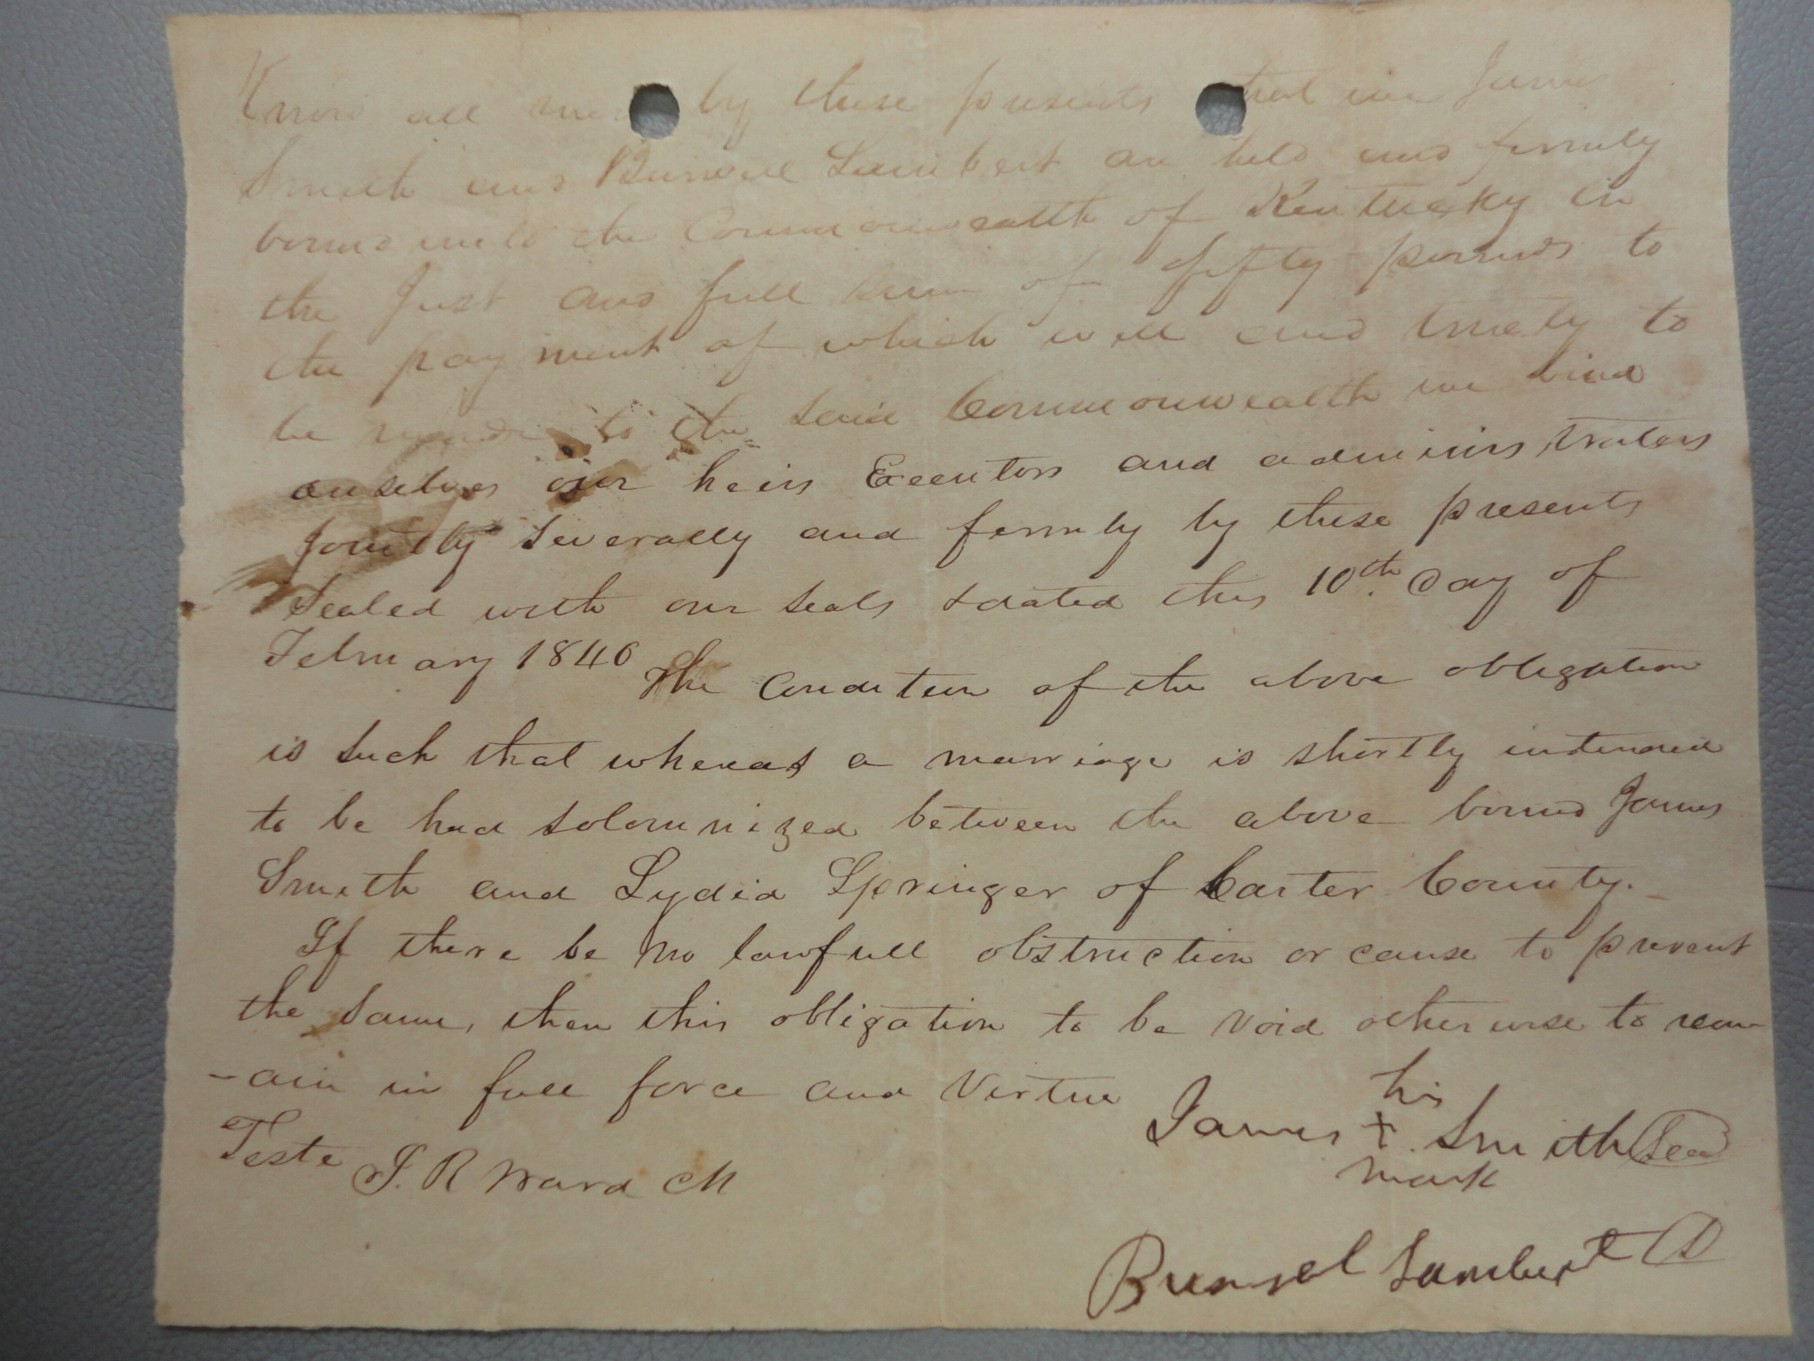 Know all men by these presents that we James
Smith and Burwell Lambert are held and firmly
bound unto the Commonwealth of Kentucky in
the Just and full sum of fifty pounds to
the payment of which well and truely to
be made to the said Commonwealth we bind
ourselves our heirs Executors and administrators
Jointly severally and firmly by these presents
Sealed with our seals & dated this 10th. Day of
February 1840 The Condition of the above obligation
is such that whereas a marriage is shortly intended
to be had solomnized between the above bound James
Smith and Lydia Springer of Carter County.
If there be no lawfull obstruction or cause to prevent
the same, then this obligation to be void otherwise to rem
-ain in full force and Virtue
his
James + Smith Seal
mark
Teste J. R Ward
Lambert